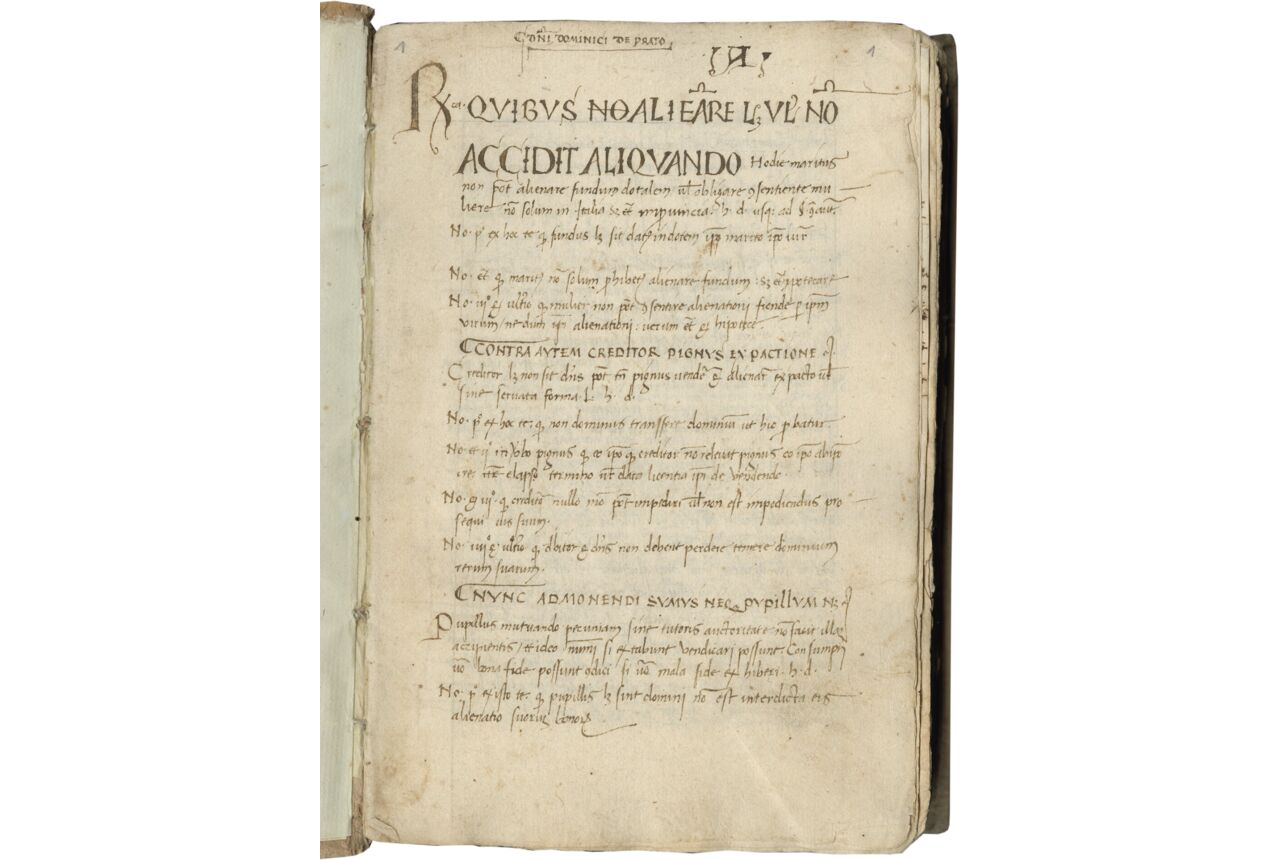 1
DÑI DOMINICI DE PRATO
1
QVIBVS NO ALIEÑARE Lꝫ VL' NO
ACCIDIT ALIQVANDO Hodie maritus
non põt alienare fundum dotalem ul' obligare ɔsentiente mu
liere nõ solum in italia sꝫ et̃ in h. d. usqꝫ ad
No. pº ex hoc te. qꝫ fundus lꝫ sit in dotem marito
No. et̃ qꝫ marit9 nõ solum phibet alienare fundum: sꝫ et̃ ypotecare
No. iijº et ultiº qꝫ mulier non põt ɔsentire alienationi fiende p ipm
virum / nedum alienationi: uerum et̃ hipotece.
CONTRA AVTEM CREDITOR PIGNVS EX PACTIONE
Creditor lꝫ non sit dñs põt tñ pignus uende alienar ex pacto ul'
sine seruata forma l. h. d.
No. pº ex hoc te. qꝫ non dominus transfert dominiũ ut hic probatur.
No. et ijº pignus qꝫ eo ipo qꝫ creditor nõ releuit pignus eo ipo
elapso termino ul' data licentia ipi de vendendo.
No. iijº qꝫ creditor nullo mõ põt impediri ul' non est impediendus pro
sequi ius suum.
No. iiijº et ultiº qꝫ debitor dñs non debent perdere temere dominium
rerum suarum.
NVNC ADMONENDI SVMVS NEQꝫ PVPILLVM
Pupillus mutuando pecuniam sine tutoris auctoritate nõ facit illaꝫ
accipientis / et ideo numi si extabunt vendicari possunt. Consumpti
uõ bona fide possunt ɔdici si uõ mala fide exhiberi. h. d.
No. pº ex isto te. qꝫ pupillis lꝫ sint domini nõ est interdicta eis
alienatio suoruꝫ bonoꝝ